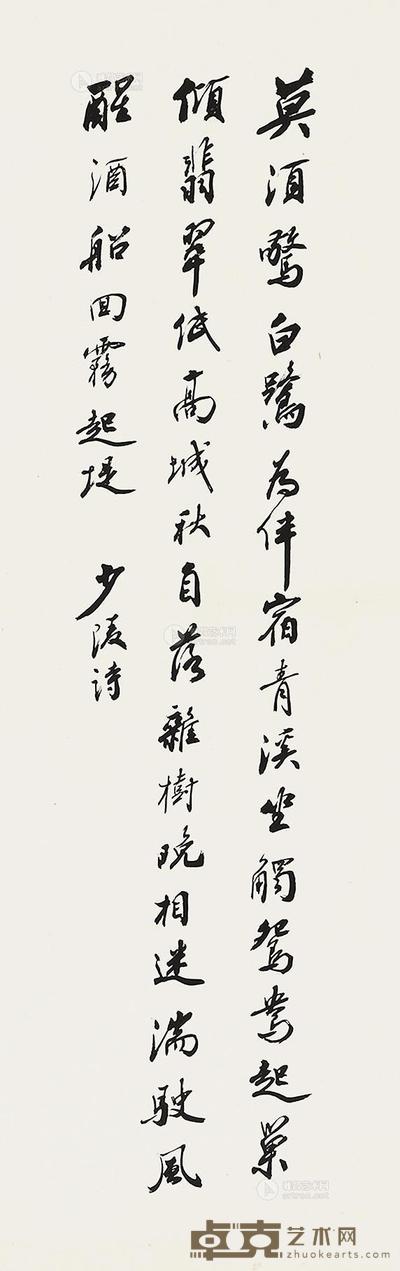 莫須驚白鷺為伴宿青溪坐觸鴛鴦起巢
傾翡翠低高城秋自落雜樹晚相迷湍駛風
醒酒船回霧起堤 少陵詩
卓克艺术网
zhuokearts.com